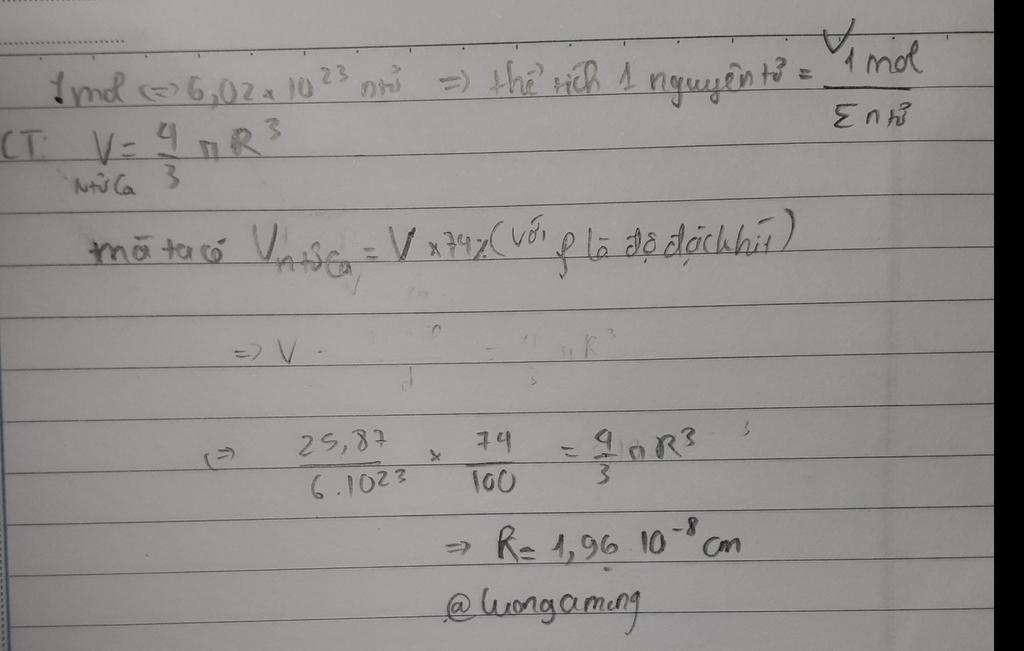 1 mol <=> 6,02 x 10²³ ntử => thể tích 1 nguyên tử = V 1 mol / Σ n tử
CT: V ntử Ca = 4/3 π R³
mà ta có V ntử Ca = V x 74% (với ρ là độ đặc khít)
=> V = π R³
<=> 25,87 / 6.10²³ x 74/100 = 4/3 π R³
=> R = 1,96 10⁻⁸ cm
@luongameng